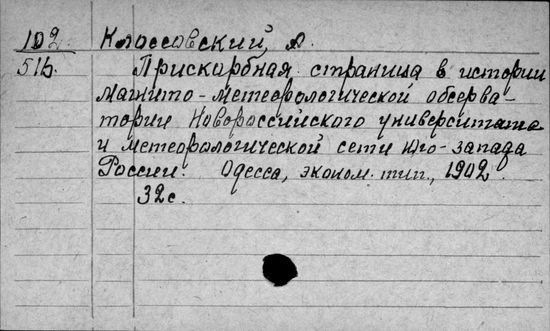 102. Клоссовский, А.
516. Прискорбная страница в истории
магнито-метеорологической обсерва-
тории Новороссийского университета
и метеорологической сети юго-запада
России. Одесса, эконом. тип., 1902.
32 с.